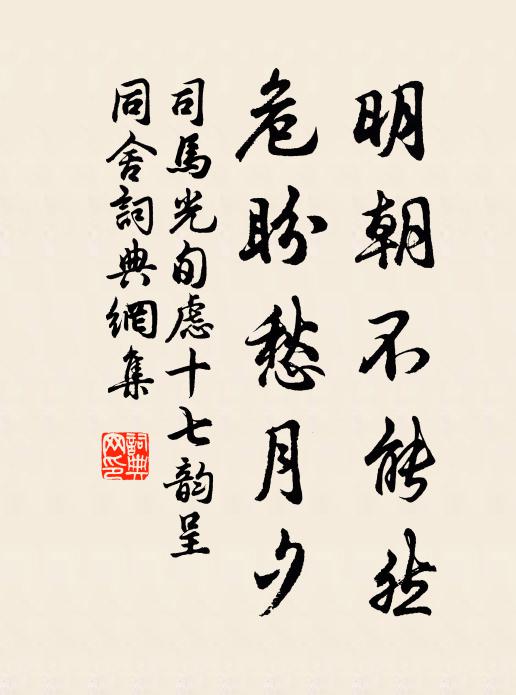 明朝不能愁
危盼愁月夕
司馬光旬慮十七韵呈
同舍詞典網集
詞典网印